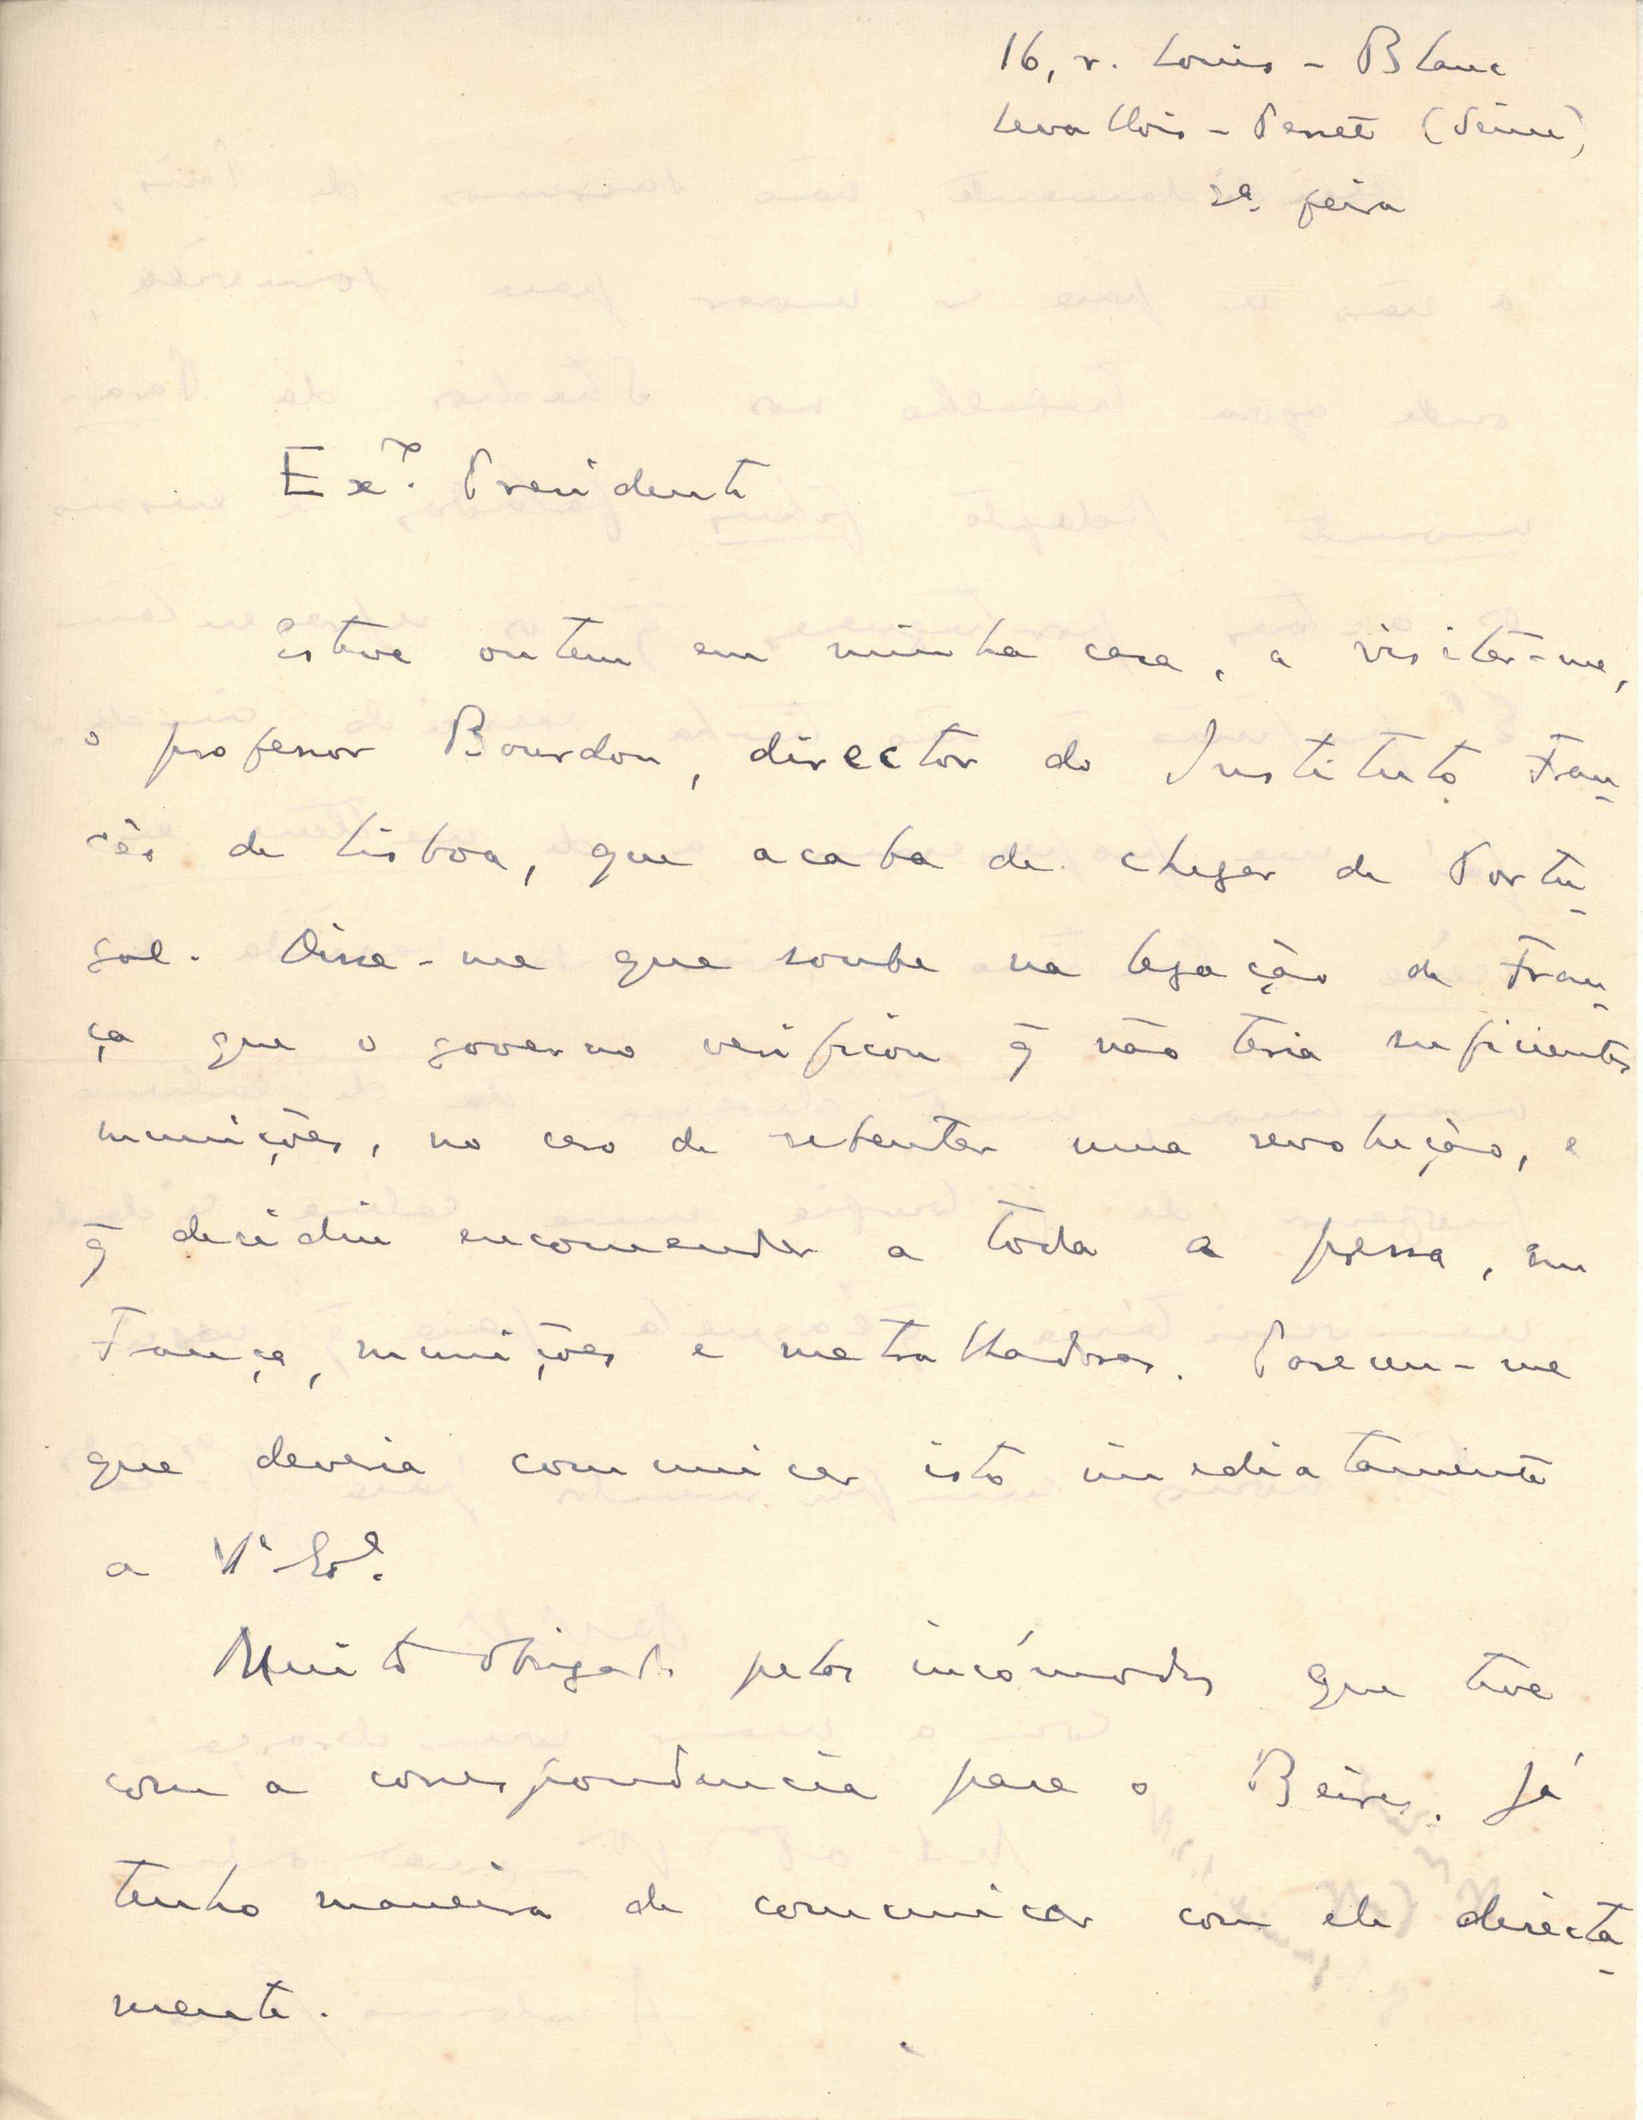 16, r. Louis-Blanc
Levallois-Perret (Seine)
2ª feira
Exº. Presidente
Esteve ontem em minha casa, a visitar-me,
o professor Bourdon, director do Instituto Fran-
cês de Lisboa, que acaba de chegar de Portu-
gal. Disse-me que soube na legação de Fran-
ça que o governo verificou q̃ não teria suficientes
munições, no caso de rebentar uma revolução, e
q̃ decidiu encomendar a toda a pressa, em
França, munições e metralhadoras. Pareceu-me
que deveria comunicar isto imediatamente
a Vª Exª.
Muito obrigado pelos incómodos que teve
com a correspondencia para o Beires. Já
tenho maneira de comunicar com ele directa-
mente.